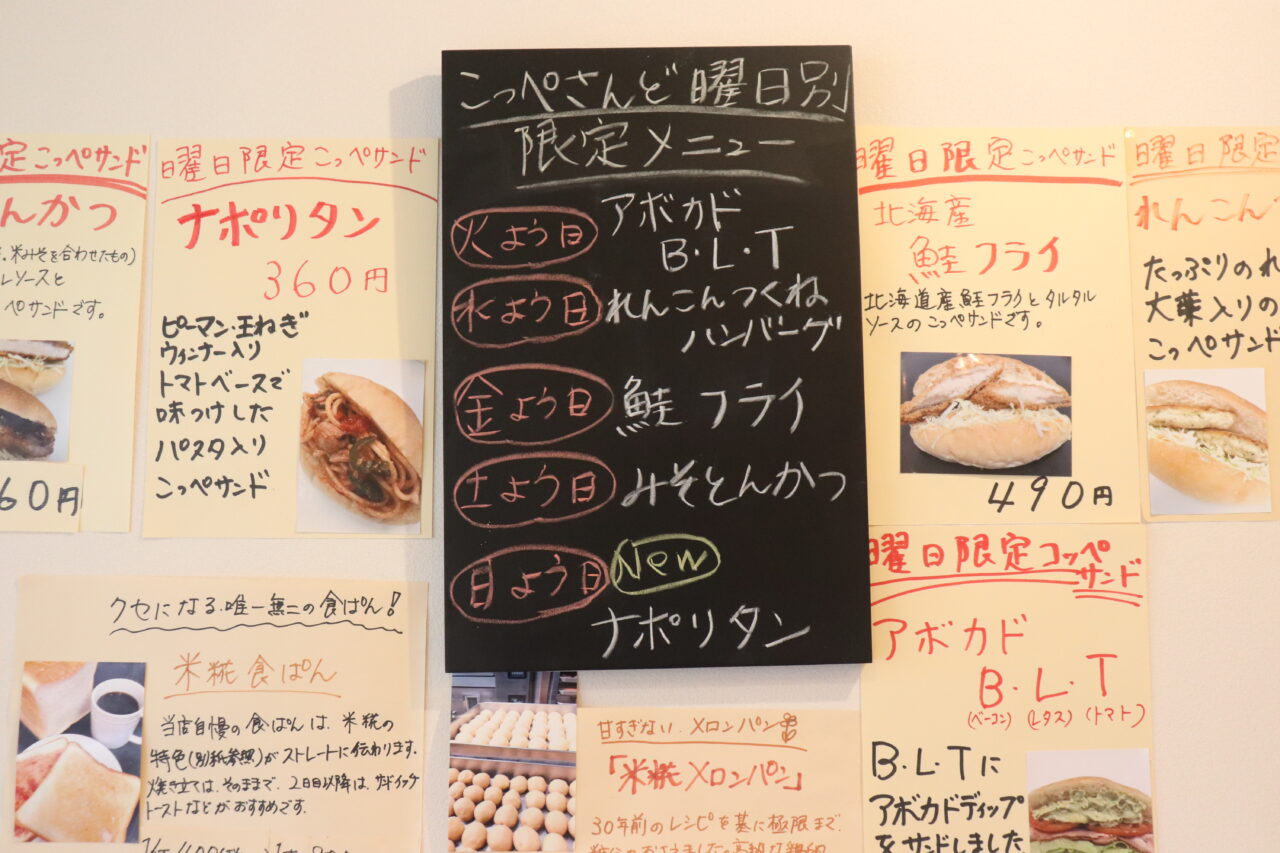 定こっぺサンド
んかつ
米みそを合わせたもの)
レソースと
ペサンドです。
60円
曜日限定こっぺサンド
ナポリタン
360円
ピーマン・玉ねぎ
ウィンナー入り
トマトベースで
味つけした
パスタ入り
こっぺサンド
こっぺさんど曜日別
限定メニュー
火よう日
アボカド
B・L・T
水よう日
れんこんつくね
ハンバーグ
金よう日
鮭フライ
土よう日
みそとんかつ
日よう日
New
ナポリタン
曜日限定こっぺサンド
北海産
鮭フライ
北海道産鮭フライとタルタル
ソースのこっぺサンドです。
490円
曜日限定
れんこん
たっぷりのれ
大葉入りの
こっぺサンド
クセになる唯一無二の食ぱん!
米糀食ぱん
当店自慢の食ぱんは、米糀の
特色(別紙参照)がストレートに伝わります。
焼き立ては、そのままで、2日目以降は、サンドイッチ
トーストなどがおすすめです。
甘すぎない、メロンパン
「米糀メロンパン」
30年前のレシピを基に極限まで
曜日限定コッペ
サンド
アボカド
B・L・T
(ベーコン) (レタス) (トマト)
B・L・Tに
アボカドディップ
をサンドしました